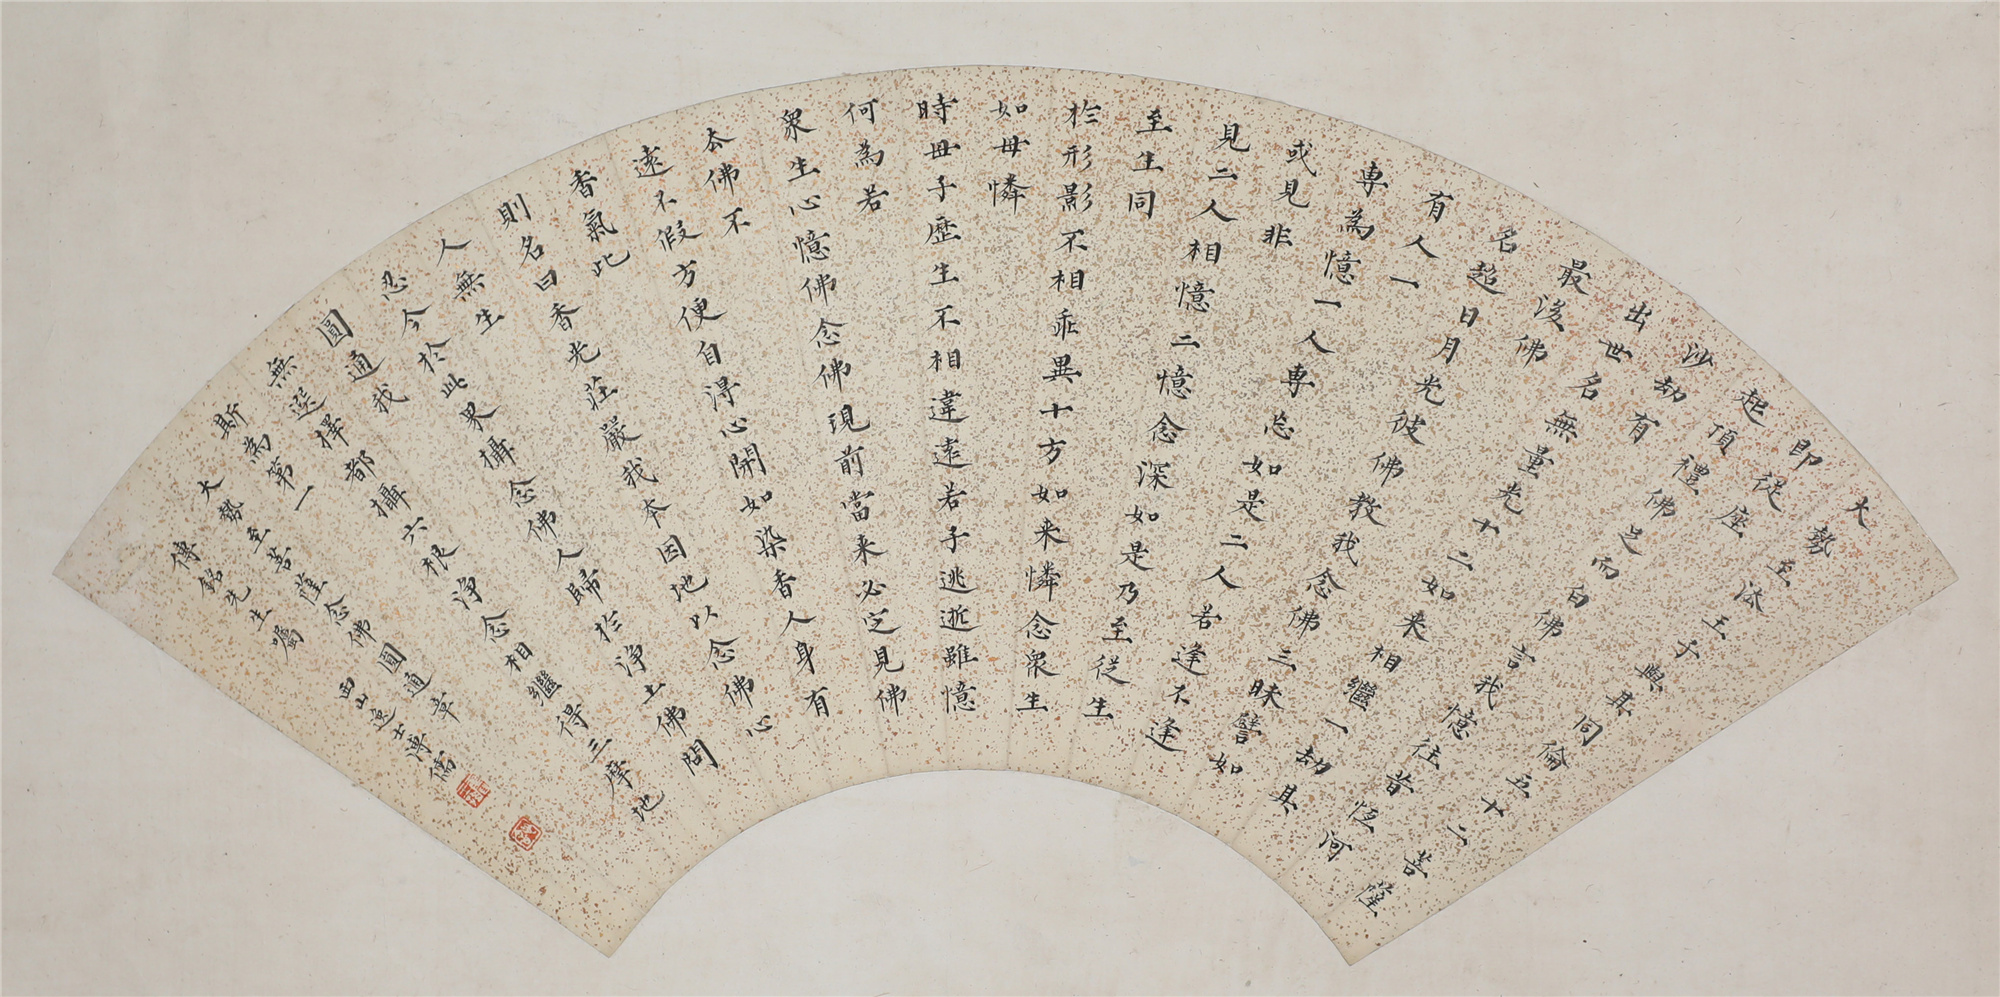 大勢至法王子與其同倫五十二菩薩
即從座
起頂禮佛足而白佛言我憶往昔恆河
沙劫有
出世名無量光十二如来相繼一劫其
最後佛
名超日月光彼佛教我念佛三昧譬如
有人一
專為憶一人專忘如是二人若逢不逢
或見非
見二人相憶二憶念深如是乃至從生
至生同
於形影不相乖異十方如来憐念眾生
如母憐
時母子歷生不相違遠若子逃逝雖憶
何為若
眾生心憶佛念佛現前當来必定見佛
去佛不
遠不假方便自得心開如染香人身有
香氣此
則名曰香光莊嚴我本因地以念佛心
人無生
忍今於此界攝念佛人歸於淨土佛問
圓通我
無選擇都攝六根淨念相繼得三摩地
斯為第一
大勢至菩薩念佛圓通章
傳銘先生屬 西山逸士溥儒